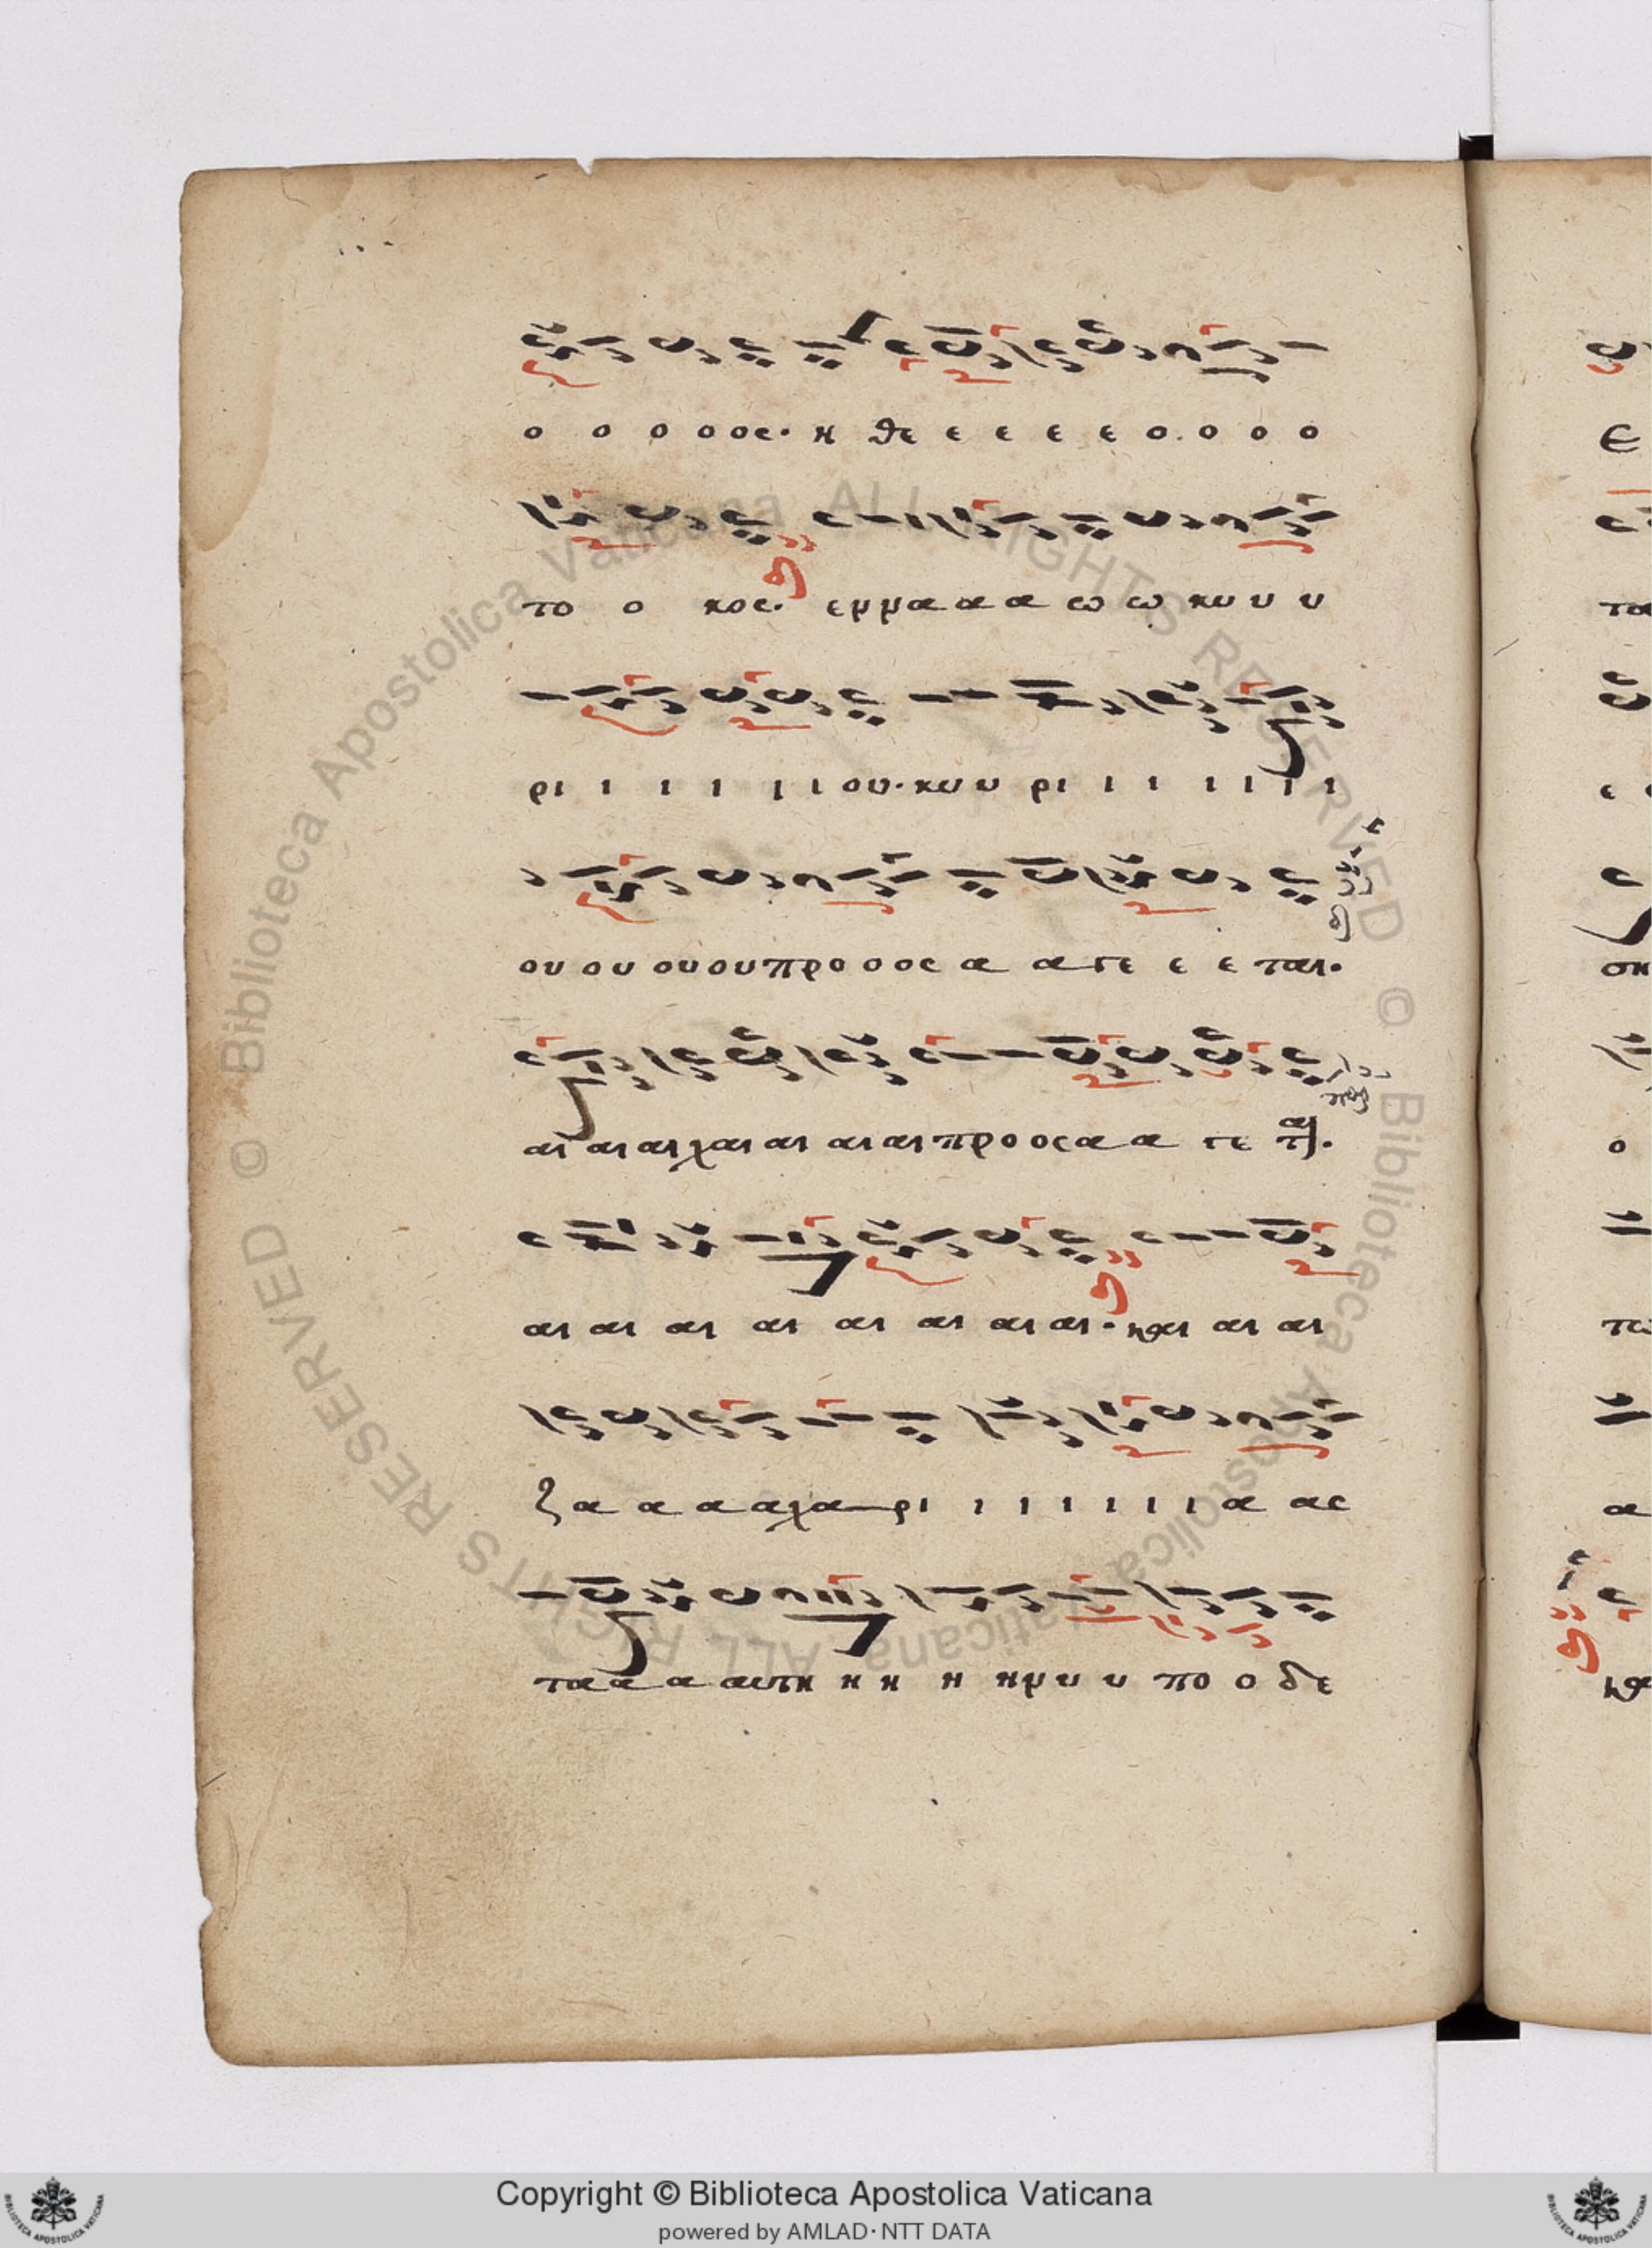 ο ο ο ο ος. η θε ε ε ε ε ο. ο ο ο
το ο κος. εμμα α α ω ω κυ υ υ
ρι ι ι ι ι ι ου. κυ υ ρι ι ι ι ι ι
ου ου ου ου προ ο ος α α γε ε ε ται.
αι αι αι χαι αι αι αι προ ος α α γε ται.
αι αι αι αι αι αι αι αι. και αι αι
ζα α α α χα ρι ι ι ι ι ι ι α ας
τα α α αυτη η η η μυ υ πο ο δε
ε
τα
ε
ση
ο
τω
α
και
Copyright © Biblioteca Apostolica Vaticana
powered by AMLAD·NTT DATA
© Biblioteca Apostolica Vaticana ALL RIGHTS RESERVED © Biblioteca Apostolica Vaticana ALL RIGHTS RESERVED